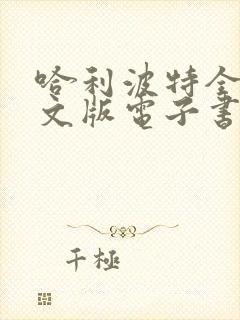 哈利波特全
文版電子書
千極